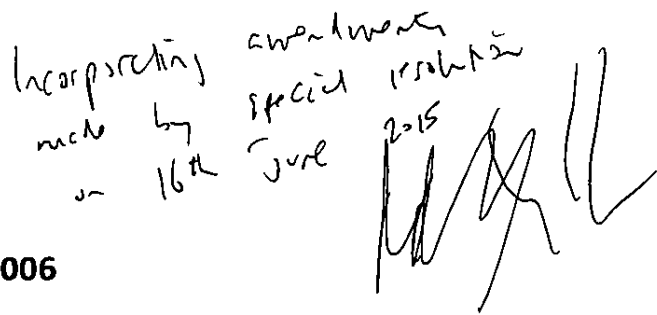 Incorporating amendments
made by special resolution
on 16th June 2015
006